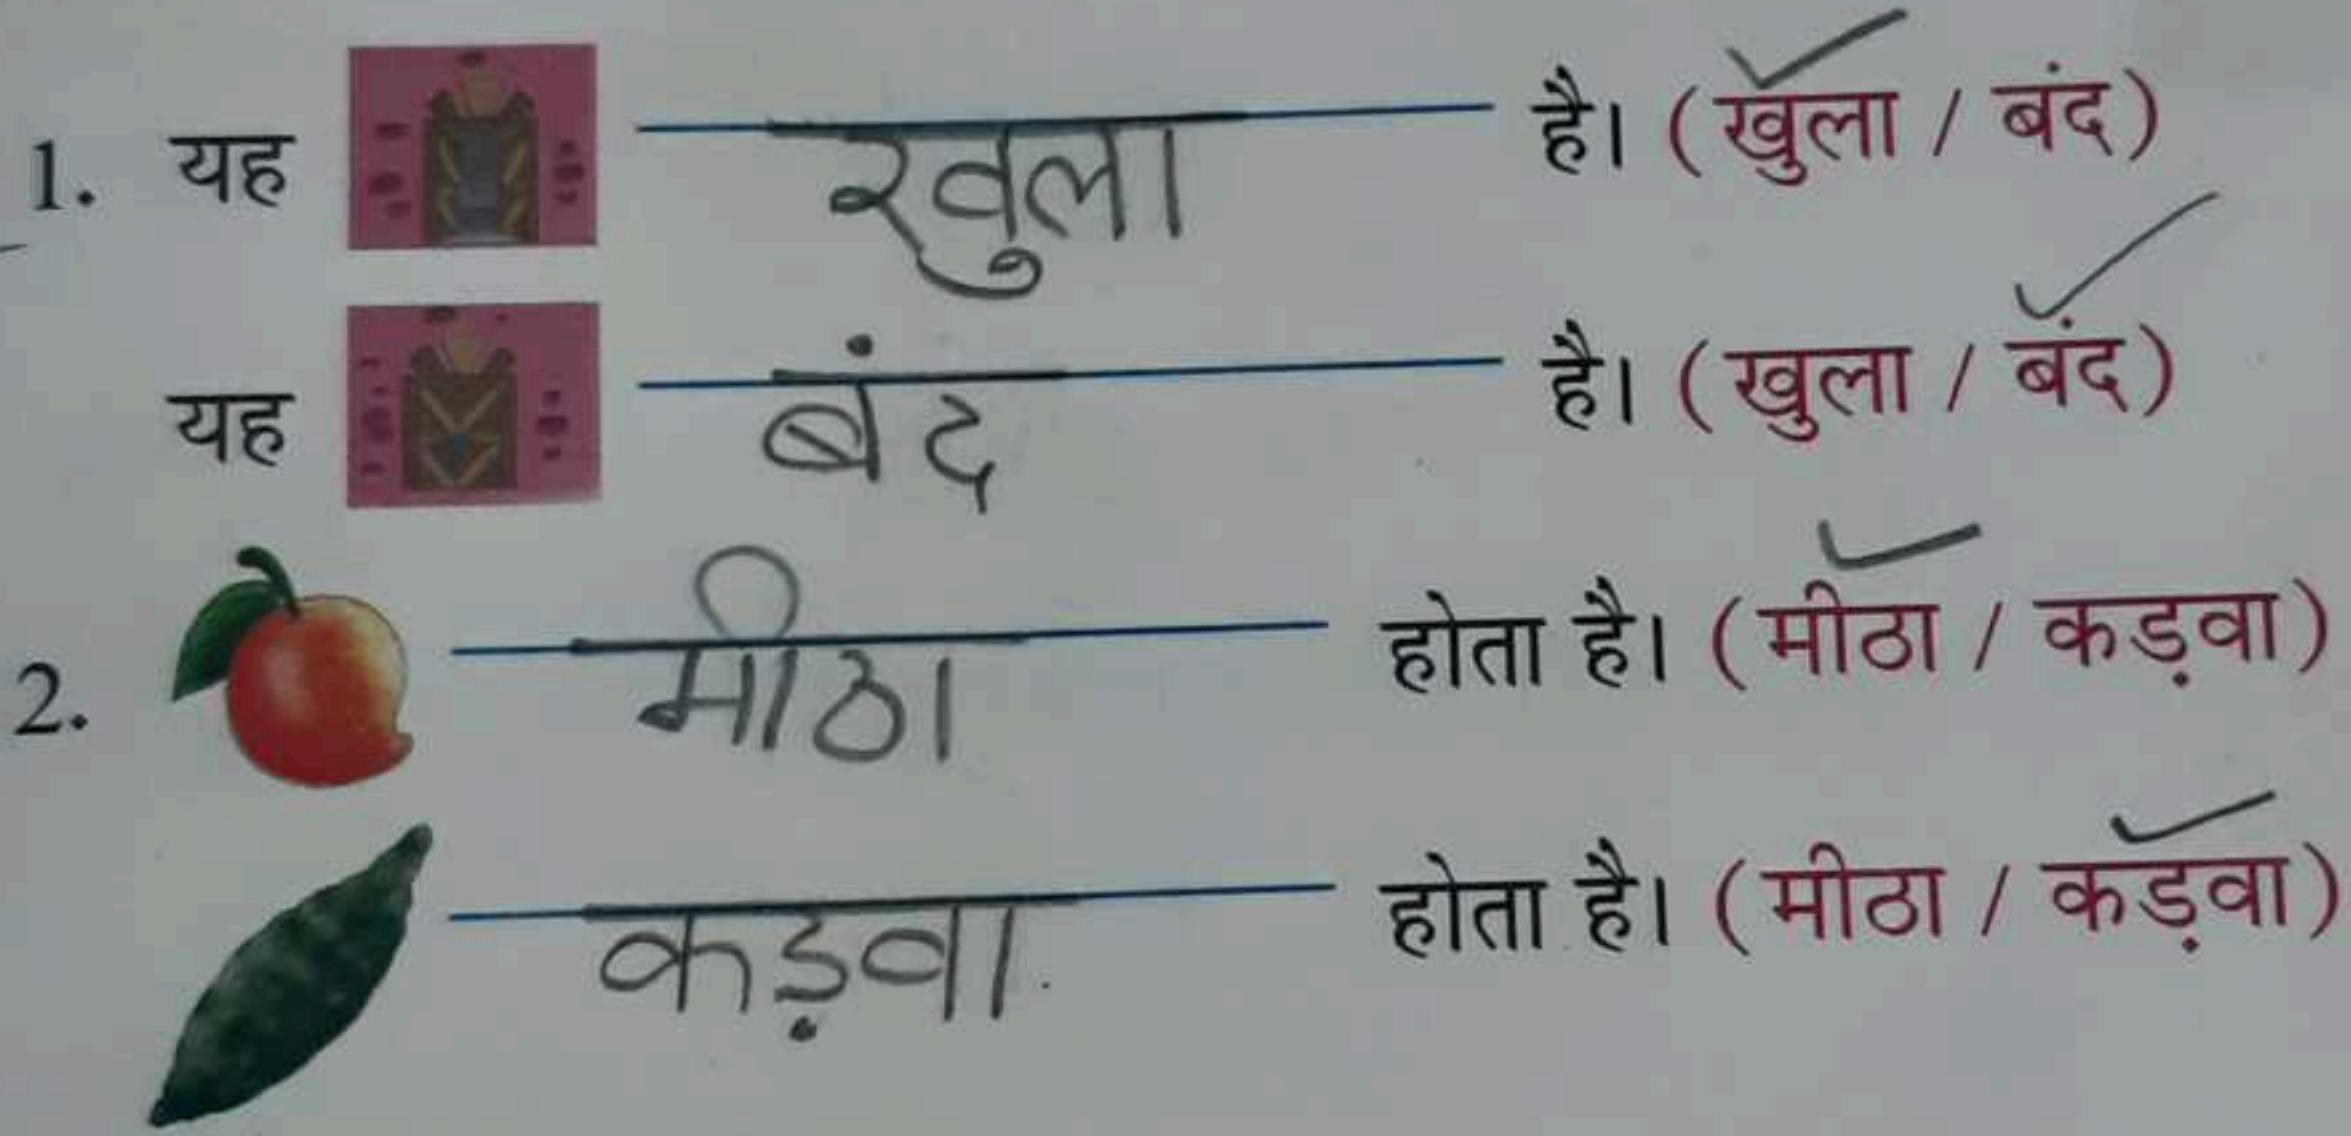 1. यह खुला है। (खुला / बंद)
यह बंद है। (खुला / बंद)
2. मीठा होता है। (मीठा / कड़वा)
कड़वा होता है। (मीठा / कड़वा)